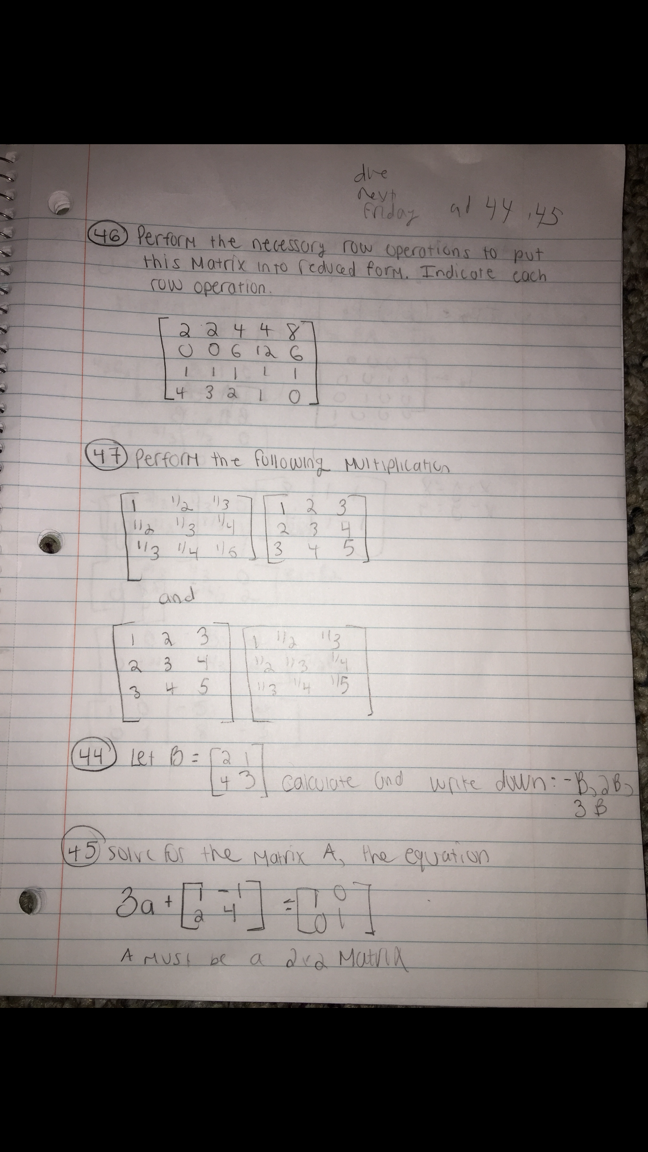 due
next
Friday al 44, 45
46 Perform the necessary row operations to put
this Matrix into reduced form. Indicate each
row operation.
2 2 4 4 8
0 0 6 12 6
1 1 1 1 1
4 3 2 1 0
47 Perform the following Multiplication
1 1/2 1/3 1 2 3
1/2 1/3 1/4 2 3 4
1/3 1/4 1/6 3 4 5
and
1 2 3 1 1/2 1/3
2 3 4 1/2 1/3 1/4
3 4 5 1/3 1/4 1/5
44 Let B = [2 1
4 3] calculate and write down: -B, 2B,
3B
45 Solve for the Matrix A, the equation
3a + [1 -1 = [1 0
2 4] 0 1]
A Must be a 2x2 Matrix